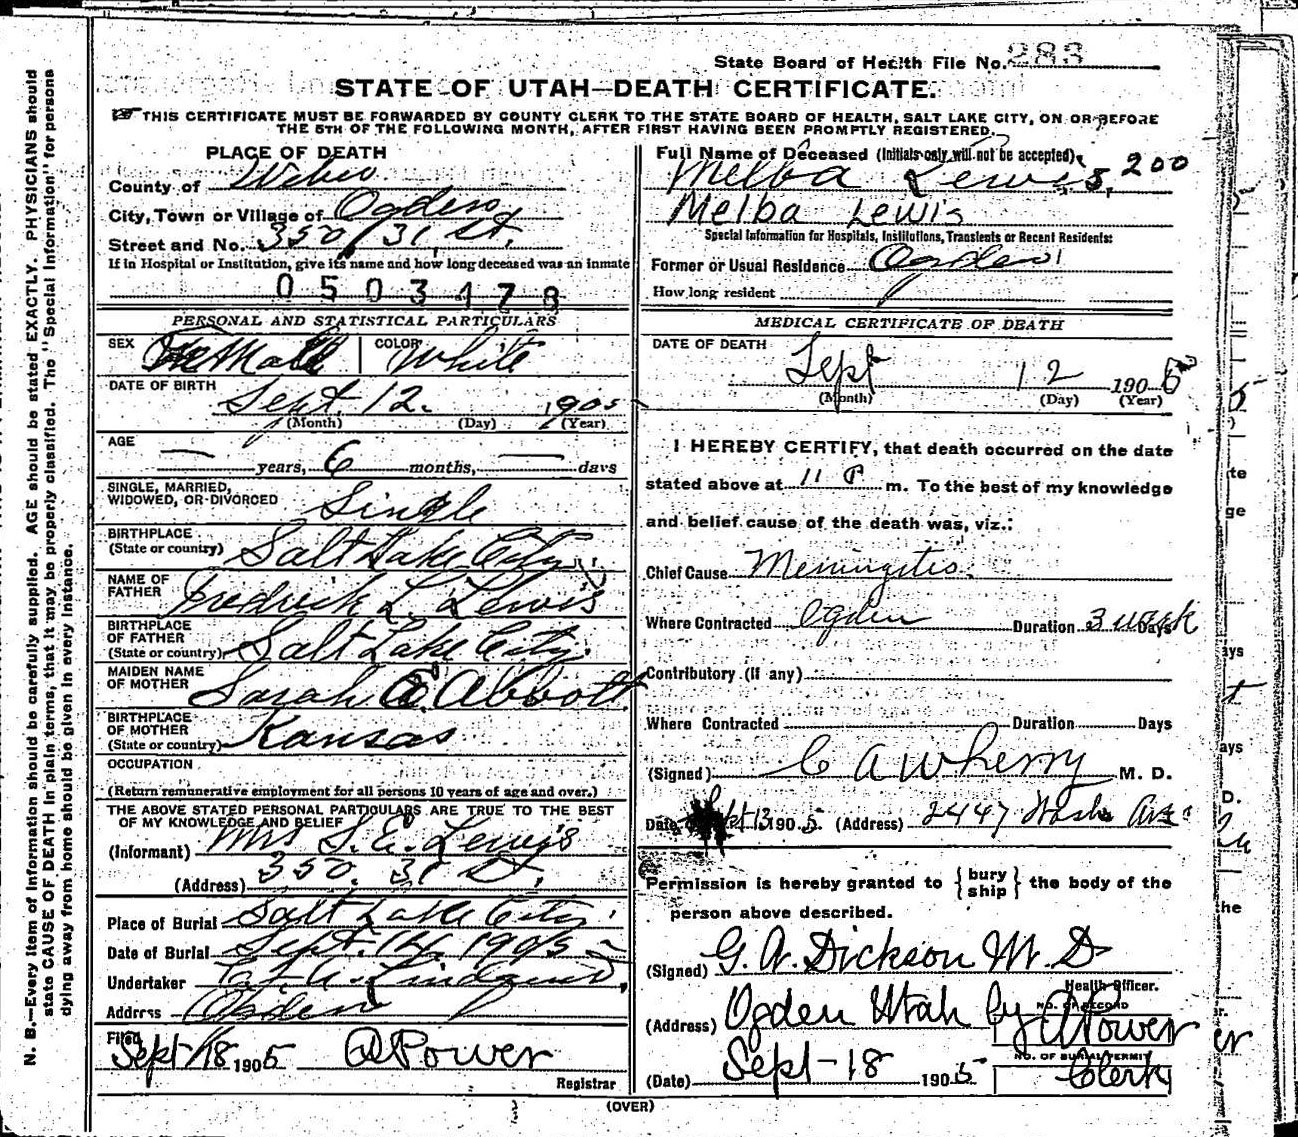 State Board of Health File No. 283
STATE OF UTAH—DEATH CERTIFICATE.
THIS CERTIFICATE MUST BE FORWARDED BY COUNTY CLERK TO THE STATE BOARD OF HEALTH, SALT LAKE CITY, ON OR BEFORE
THE 5TH OF THE FOLLOWING MONTH, AFTER FIRST HAVING BEEN PROMPTLY REGISTERED.
PLACE OF DEATH
County of Weber
City, Town or Village of Ogden
Street and No. 350 / 31 St.
If in Hospital or Institution, give its name and how long deceased was an inmate
0503478
PERSONAL AND STATISTICAL PARTICULARS
SEX Female COLOR White
DATE OF BIRTH
Sept. 12. 1905
(Month) (Day) (Year)
AGE
— years, 6 months, — days
SINGLE, MARRIED,
WIDOWED, OR DIVORCED Single
BIRTHPLACE
(State or country) Salt Lake City
NAME OF
FATHER Fredrick L. Lewis
BIRTHPLACE
OF FATHER
(State or country) Salt Lake City.
MAIDEN NAME
OF MOTHER Sarah E. Abbott
BIRTHPLACE
OF MOTHER
(State or country) Kansas
OCCUPATION
(Return remunerative employment for all persons 10 years of age and over.)
THE ABOVE STATED PERSONAL PARTICULARS ARE TRUE TO THE BEST
OF MY KNOWLEDGE AND BELIEF
(Informant) Mrs S. E. Lewis
(Address) 350. 31 St.
Place of Burial Salt Lake City.
Date of Burial Sept. 14. 1905
Undertaker Lindquist,
Address Ogden
Filed Sept 18 1905 A Power
Registrar
Full Name of Deceased (Initials only will not be accepted)
Melba Lewis, 200
Melba Lewis
Special Information for Hospitals, Institutions, Transients or Recent Residents:
Former or Usual Residence Ogden
How long resident
MEDICAL CERTIFICATE OF DEATH
DATE OF DEATH
Sept 12 1905
(Month) (Day) (Year)
I HEREBY CERTIFY, that death occurred on the date
stated above at 11 P m. To the best of my knowledge
and belief cause of the death was, viz.:
Chief Cause Meningitis.
Where Contracted Ogden Duration 3 week Days
Contributory (if any)
Where Contracted Duration Days
(Signed) C A Wherry M. D.
Date Sept 13 1905. (Address) 2447 Wash Ave
Permission is hereby granted to {bury ship} the body of the
person above described.
(Signed) G. A. Dickson M. D
Health Officer.
(Address) Ogden Utah by A Power
NO. OF RECORD
(Date) Sept-18 1905
NO. OF BURIAL PERMIT
Clerk
(OVER)
N. B.—Every item of information should be carefully supplied. AGE should be stated EXACTLY. PHYSICIANS should
state CAUSE OF DEATH in plain terms, that it may be properly classified. The "Special Information" for persons
dying away from home should be given in every instance.